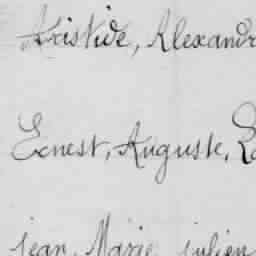 Aristide, Alexandr
Ernest, Auguste,
jean Marie julien